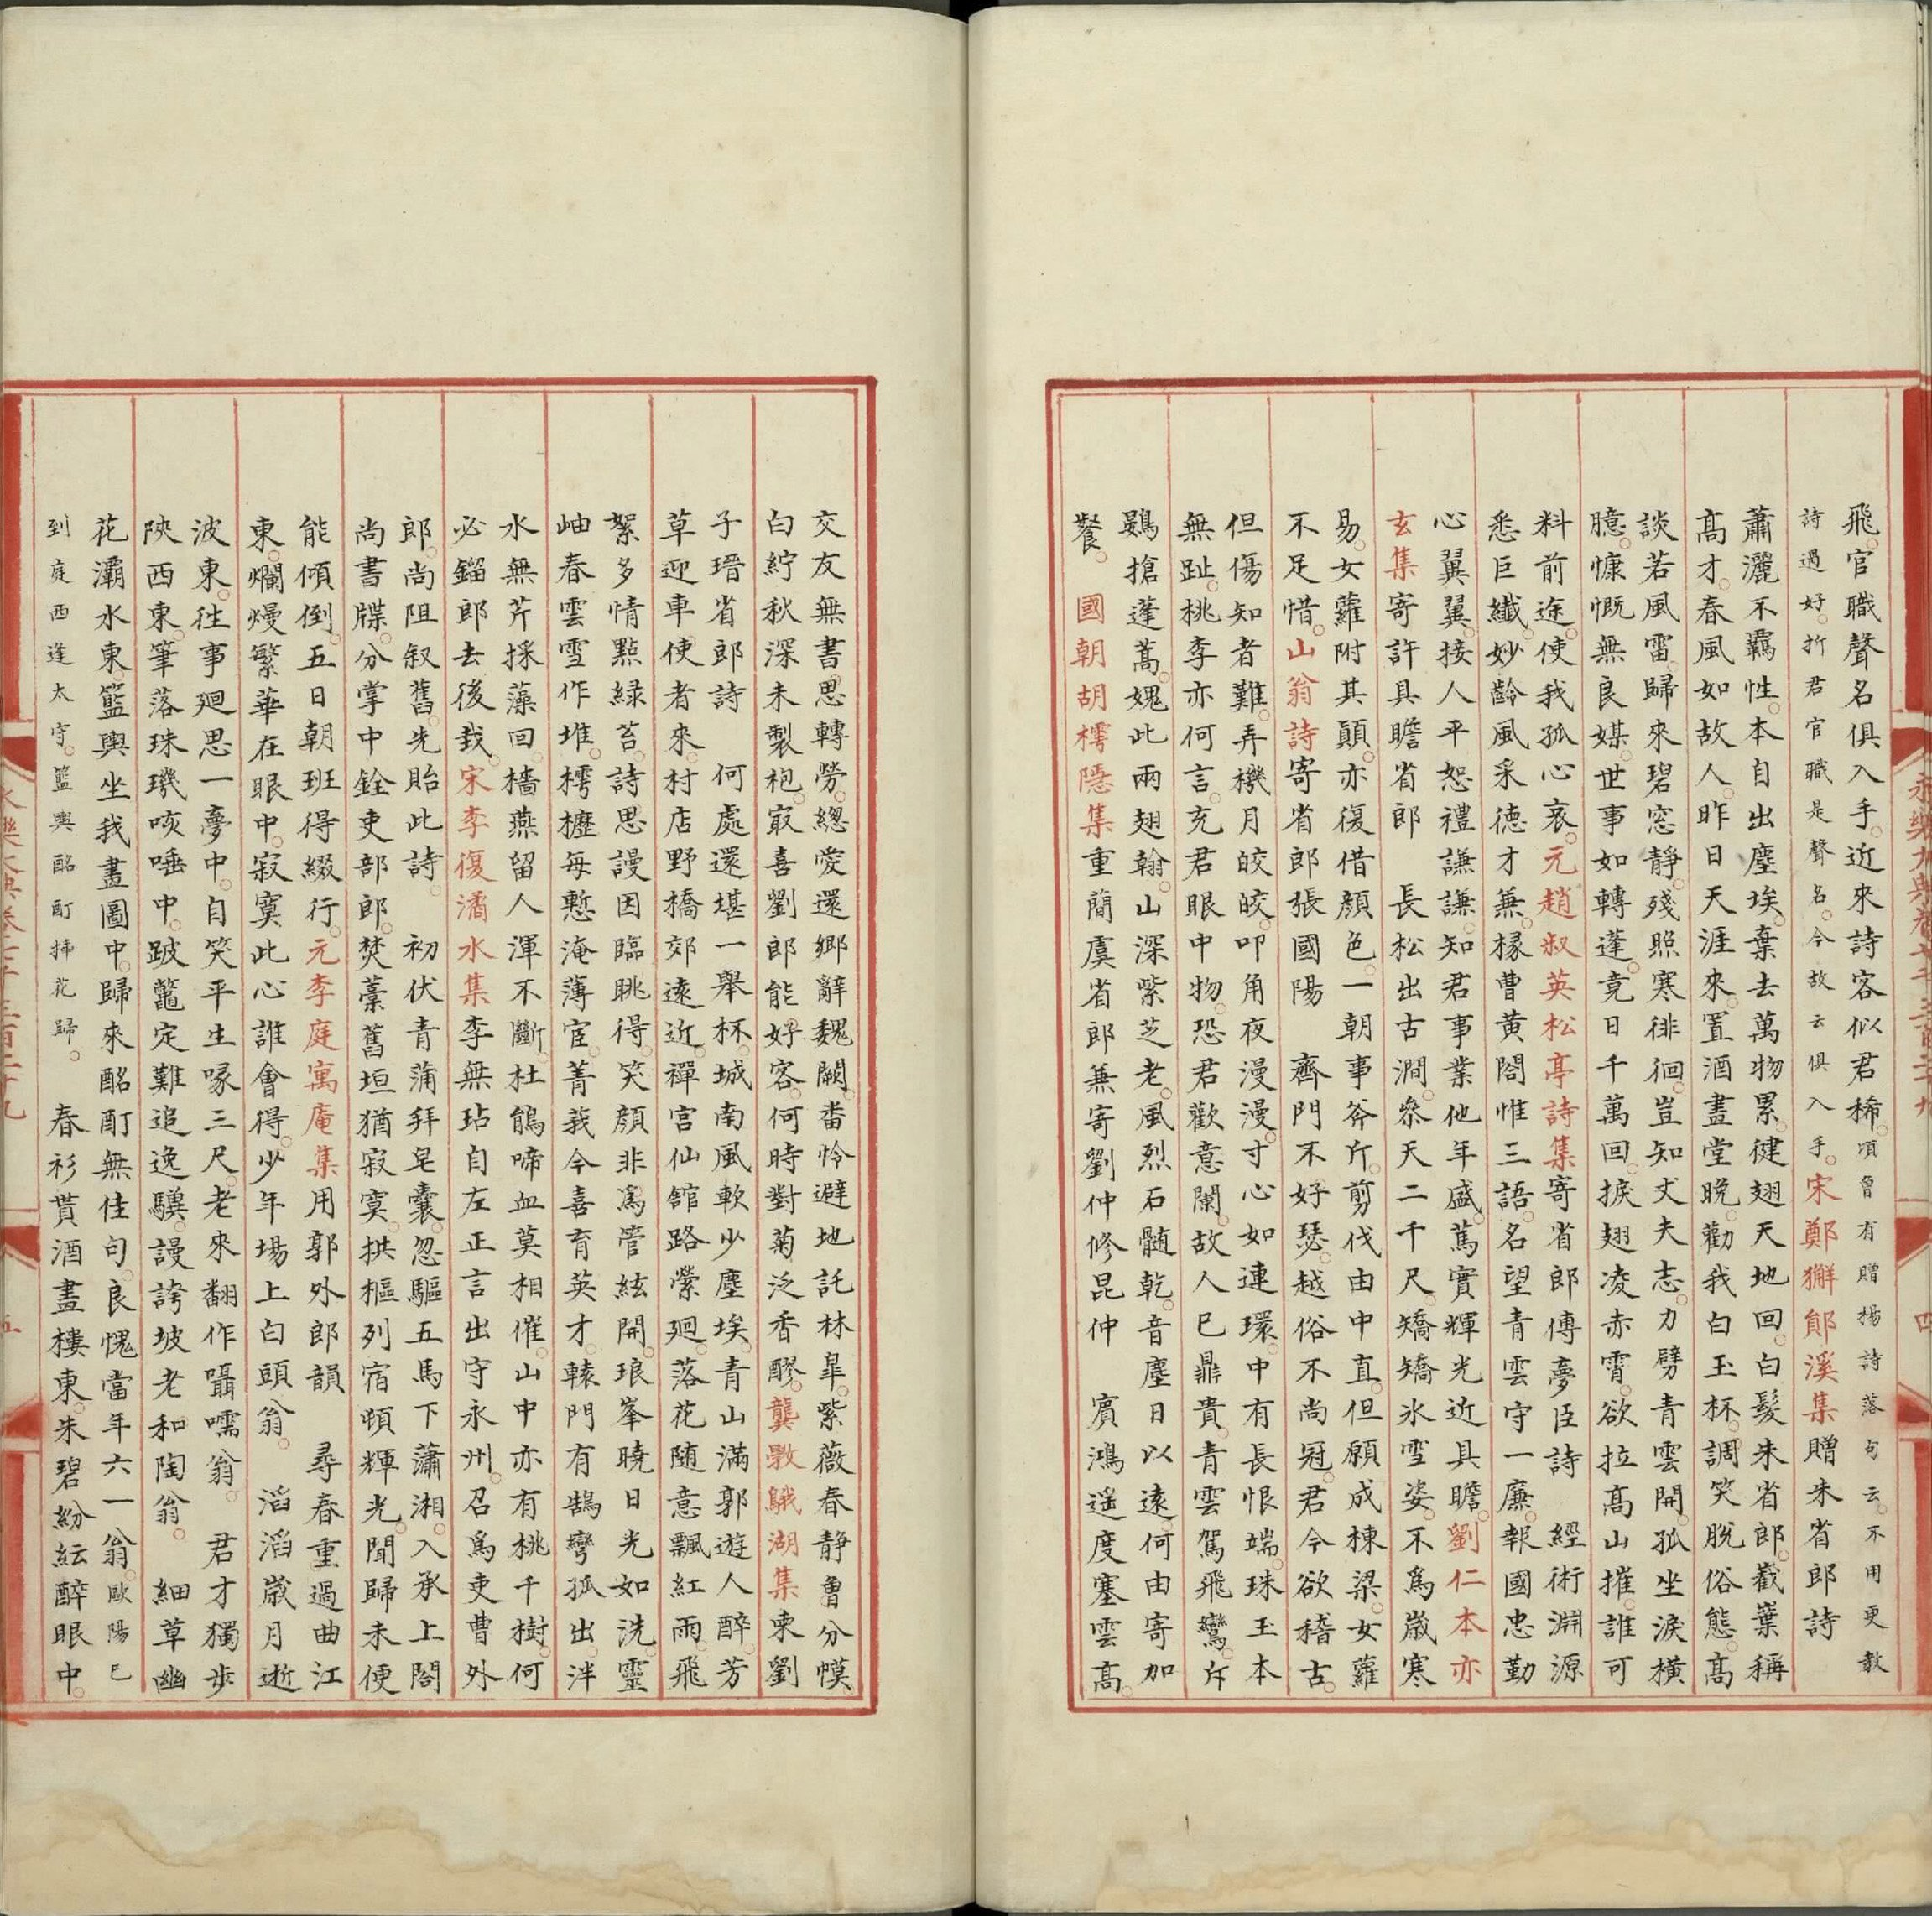 飛。官職聲名俱入手。近來詩客似君稀。項曾有贈楊詩落句云。不用更教
詩過好。折君官職是聲名。今故云俱入手。宋鄭獬鄖溪集贈朱省郎詩
蕭灑不羈性。本自出塵埃。棄去萬物累。健翅天地回。白髮朱省郎。戴葉稱
高才。春風如故人。昨日天涯來。置酒畫堂晚。勸我白玉杯。調笑脫俗態。高
談若風雷。歸來碧窓静。殘照寒徘徊。豈知丈夫志。力劈青雲開。孤坐淚橫
臆。慷慨無良媒。世事如轉蓬。竟日千萬回。捩翅凌赤霄。欲拉高山摧。誰可
料前途。使我孤心哀。元趙叔英松亭詩集寄省郎傅夢臣詩 經術淵源
悉巨纖。妙齡風采德才兼。椽曹黄閤惟三語。名望青雲守一廉。報國忠勤
心翼翼。接人平恕禮謙謙。知君事業他年盛。篤實輝光近具瞻。劉仁本亦
玄集寄許具瞻省郎 長松出古澗。叅天二千尺。矯矯氷雪姿。不爲歲寒
易。女蘿附其顚。亦復借顔色。一朝事斧斤。剪伐由中直。但願成棟梁。女蘿
不足惜。山翁詩寄省郎張國陽 齊門不好瑟。越俗不尚冠。君今欲稽古。
但傷知者難。弄機月皎皎。叩角夜漫漫。寸心如連環。中有長恨端。珠玉本
無趾。桃李亦何言。充君眼中物。恐君歡意闌。故人已鼎貴。青雲駕飛鸞。斥
鷃搶蓬蒿。媿此兩翅翰。山深紫芝老。風烈石髓乾。音塵日以遠。何由寄加
餐。 國朝胡樗隱集重簡虞省郎兼寄劉仲修昆仲 賔鴻遥度塞雲高。
交友無書思轉勞。緫愛還鄉辭魏闕。畨怜避地託林臯。紫薇春静曾分幙。
白紵秋深未製袍。㝡喜劉郎能好客。何時對菊泛香醪。龔斅鵝湖集柬劉
子瑨省郎詩 何處還堪一舉杯。城南風軟少塵埃。青山滿郭遊人醉。芳
草迎車使者來。村店野橋郊逺近。禪宮仙舘路縈廻。落花随意飄紅雨。飛
絮多情㸃緑苔。詩思謾因臨眺得。笑顔非爲管絃開。琅峯曉日光如洗。靈
岫春雲雪作堆。樗櫪每慙淹薄宦。菁莪今喜育英才。轅門有鵠彎孤出。泮
水無芹採藻回。檣燕留人渾不斷。杜鵑啼血莫相催。山中亦有桃千樹。何
必鎦郎去後栽。宋李復潏水集李無玷自左正言出守永州。召爲吏曹外
郎。尚阻叙舊。先貽此詩。 初伏青蒲拜皂囊。忽驅五馬下瀟湘。入承上閤
尚書牒。分掌中銓吏部郎。焚藁舊垣猶寂寞。拱樞列宿頓輝光。聞歸未便
能傾倒。五日朝班得綴行。元李庭寓庵集用郭外郎韻 尋春重過曲江
東。爛熳繁華在眼中。寂寞此心誰會得。少年場上白頭翁。 滔滔歲月逝
波東。徃事廻思一夢中。自笑平生喙三尺。老來翻作囁嚅翁。 君才獨步
陝西東。筆落珠璣咳唾中。跛鼈定難追逸驥。謾誇坡老和陶翁。 細草幽
花灞水東。籃輿坐我畫圖中。歸來酩酊無佳句。良愧當年六一翁。歐陽已
到庭西逢太守。籃輿酩酊揷花歸。 春衫貰酒畫樓東。朱碧紛紜醉眼中。